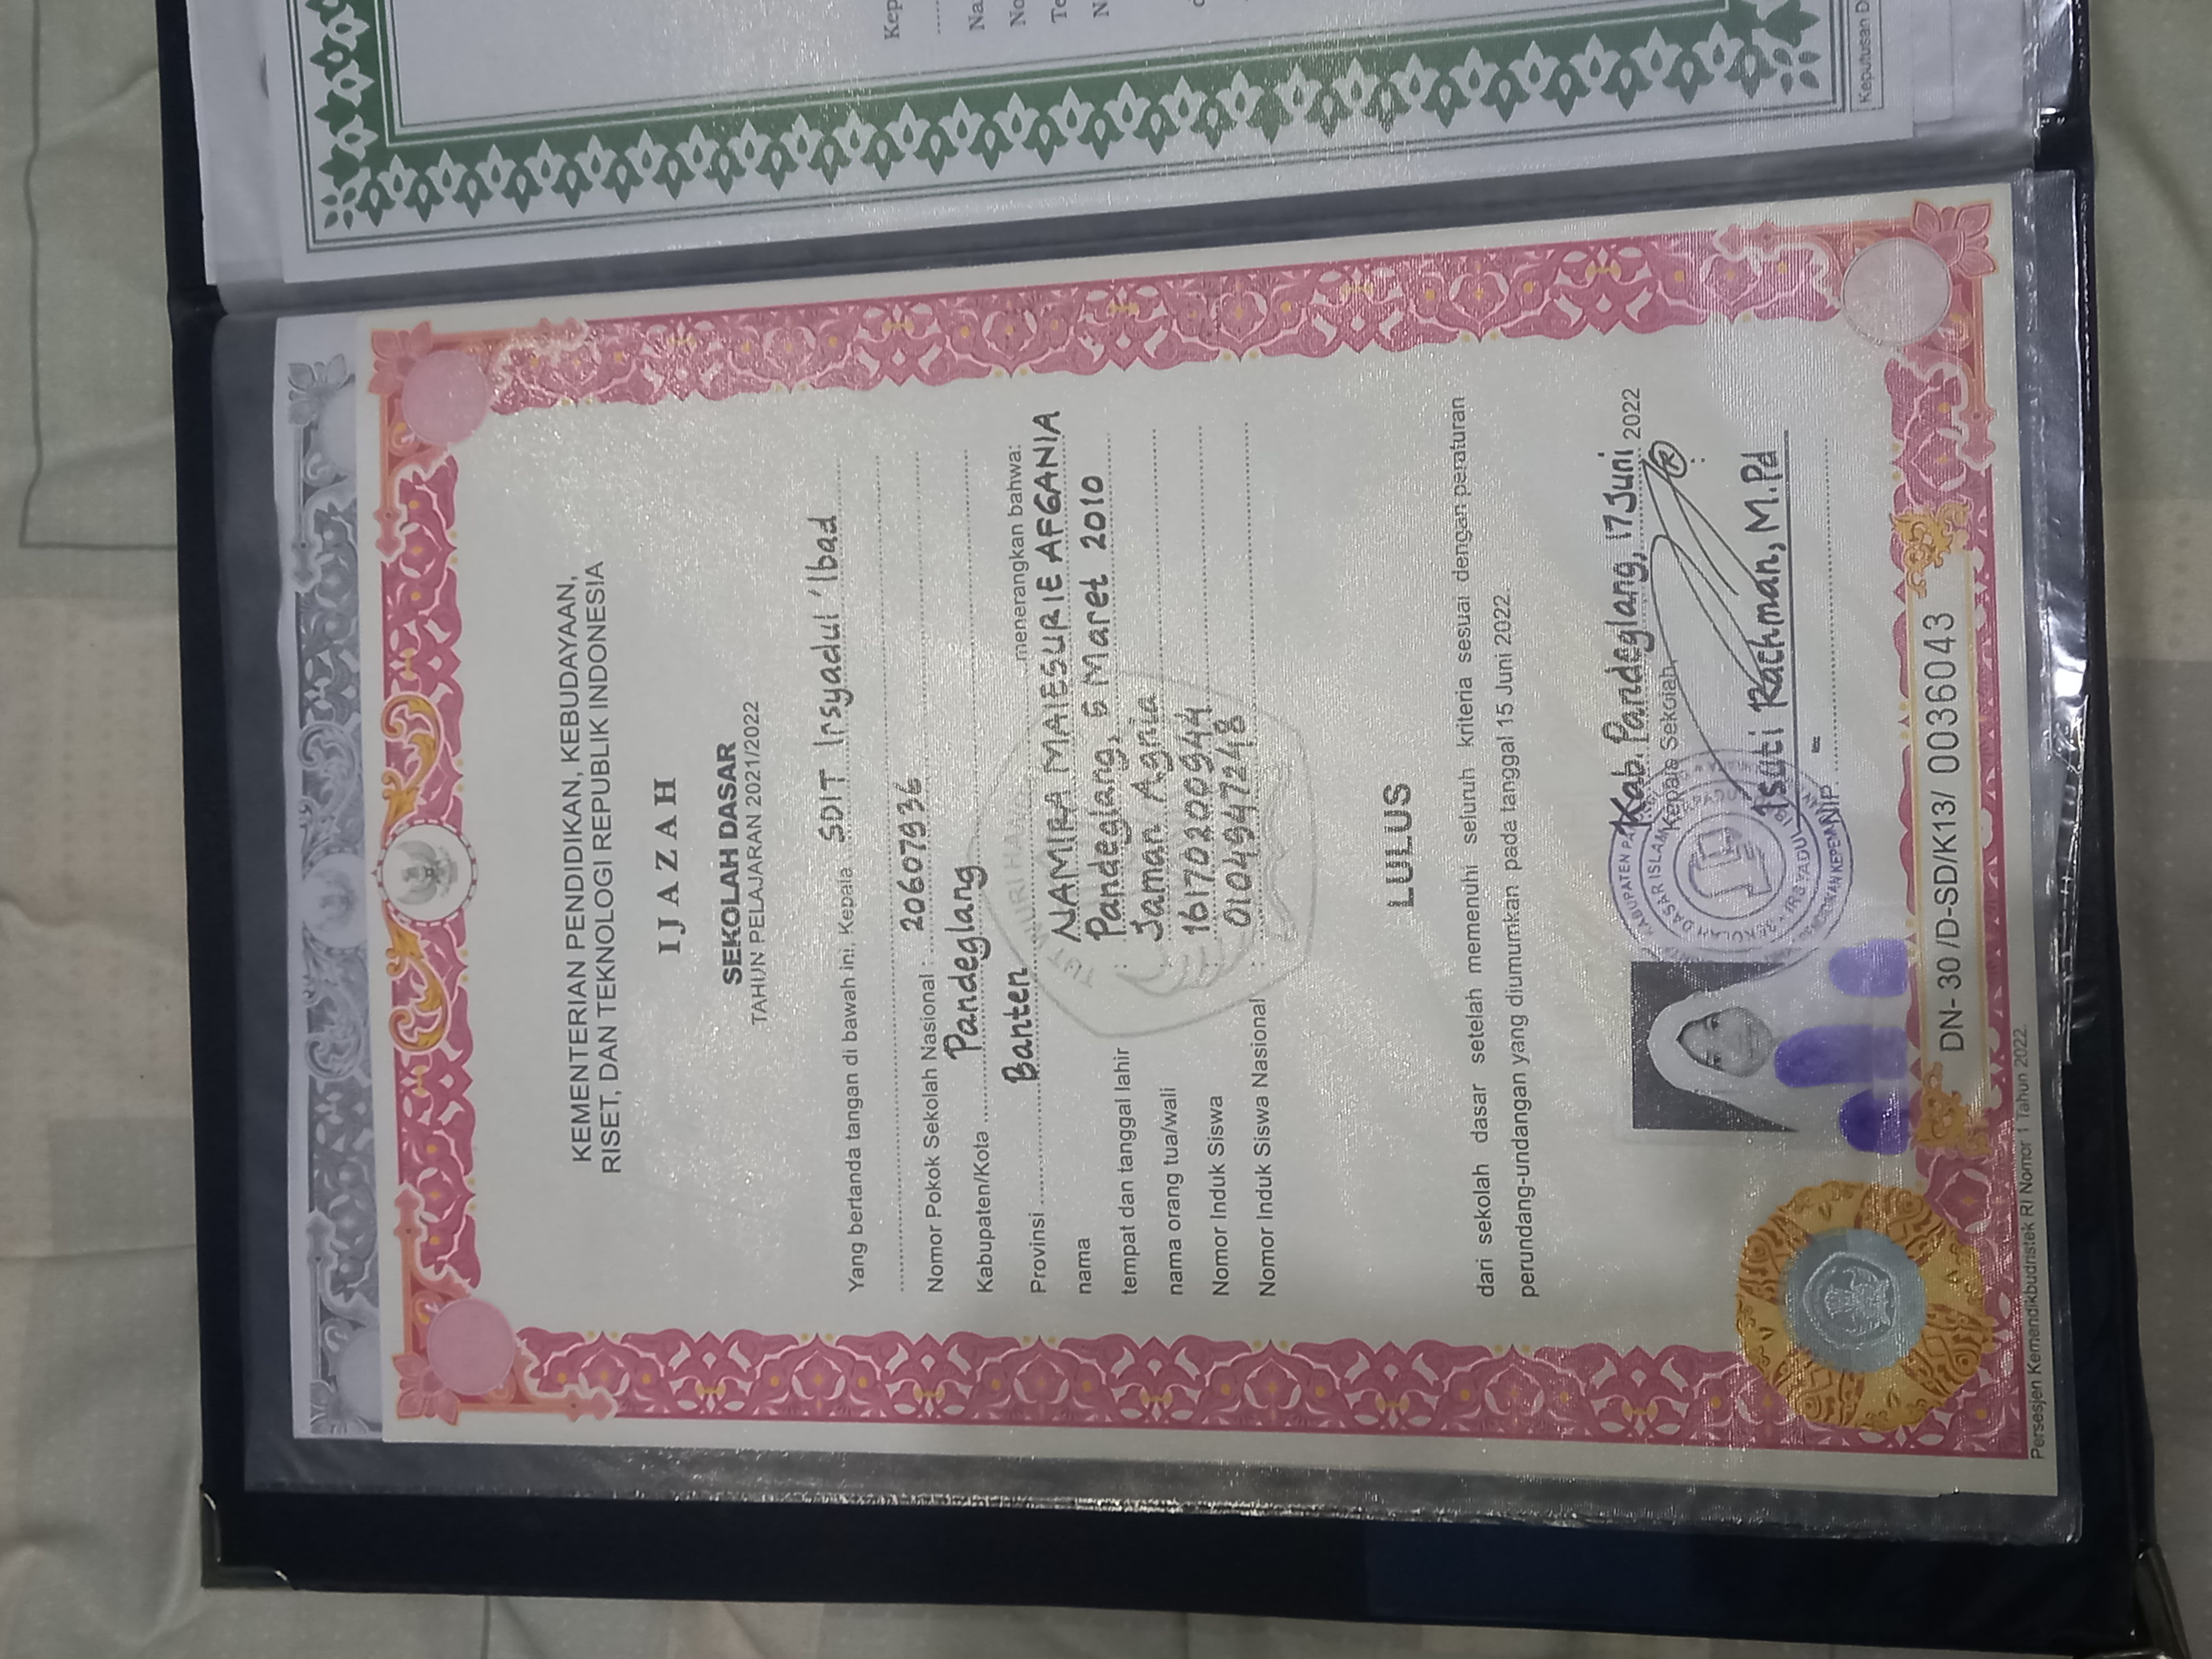 KEMENTERIAN PENDIDIKAN, KEBUDAYAAN,
RISET, DAN TEKNOLOGI REPUBLIK INDONESIA
IJAZAH
SEKOLAH DASAR
TAHUN PELAJARAN 2021/2022
Yang bertanda tangan di bawah ini, Kepala SDIT Irsyadul 'Ibad
Nomor Pokok Sekolah Nasional : 20607936
Kabupaten/Kota Pandeglang
Provinsi Banten menerangkan bahwa:
nama NAMIRA MAIESURIE AFGANIA
tempat dan tanggal lahir : Pandeglang, 6 Maret 2010
nama orang tua/wali : Jaman Agnia
Nomor Induk Siswa : 16170200944
Nomor Induk Siswa Nasional : 0104947248
TUT WURI
LULUS
dari sekolah dasar setelah memenuhi seluruh kriteria sesuai dengan peraturan
perundang-undangan yang diumumkan pada tanggal 15 Juni 2022.
Kab. Pandeglang, 17 Juni 2022
Kepala Sekolah,
Isuti Rachman, M.Pd
NIP. -
KABUPATEN
SEKOLAH DASAR ISLAM
IRSYADUL
DN- 30 /D-SD/K13/ 0036043
Persesjen Kemendikbudristek RI Nomor 1 Tahun 2022.
Kep
Na
No
Te
N
Keputusan D